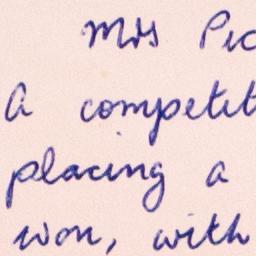 Mrs Pic
A competit
placing a
won, with